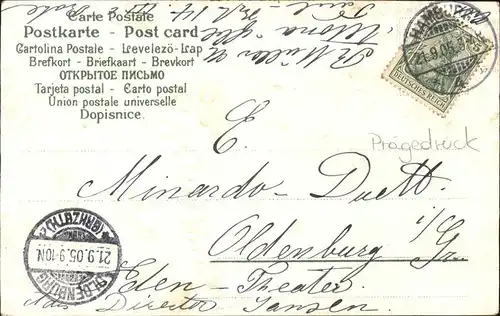 Carte Postale
Postkarte - Post card
Cartolina Postale - Levelező-Lap
Brefkort - Briefkaart - Brevkort
ОТКРЫТОЕ ПИСЬМО
Tarjeta postal - Carto postal
Union postale universelle
Dopisnice.
HAMBURG
21.9.05.
DEUTSCHES REICH
Prägedruck
E.
Minardo-Duett.
Oldenburg i/Gr.
Eden-Theater.
Director Jansen.
OLDENBURG
21.9.05.9-10N.
(GRHZGTH.)